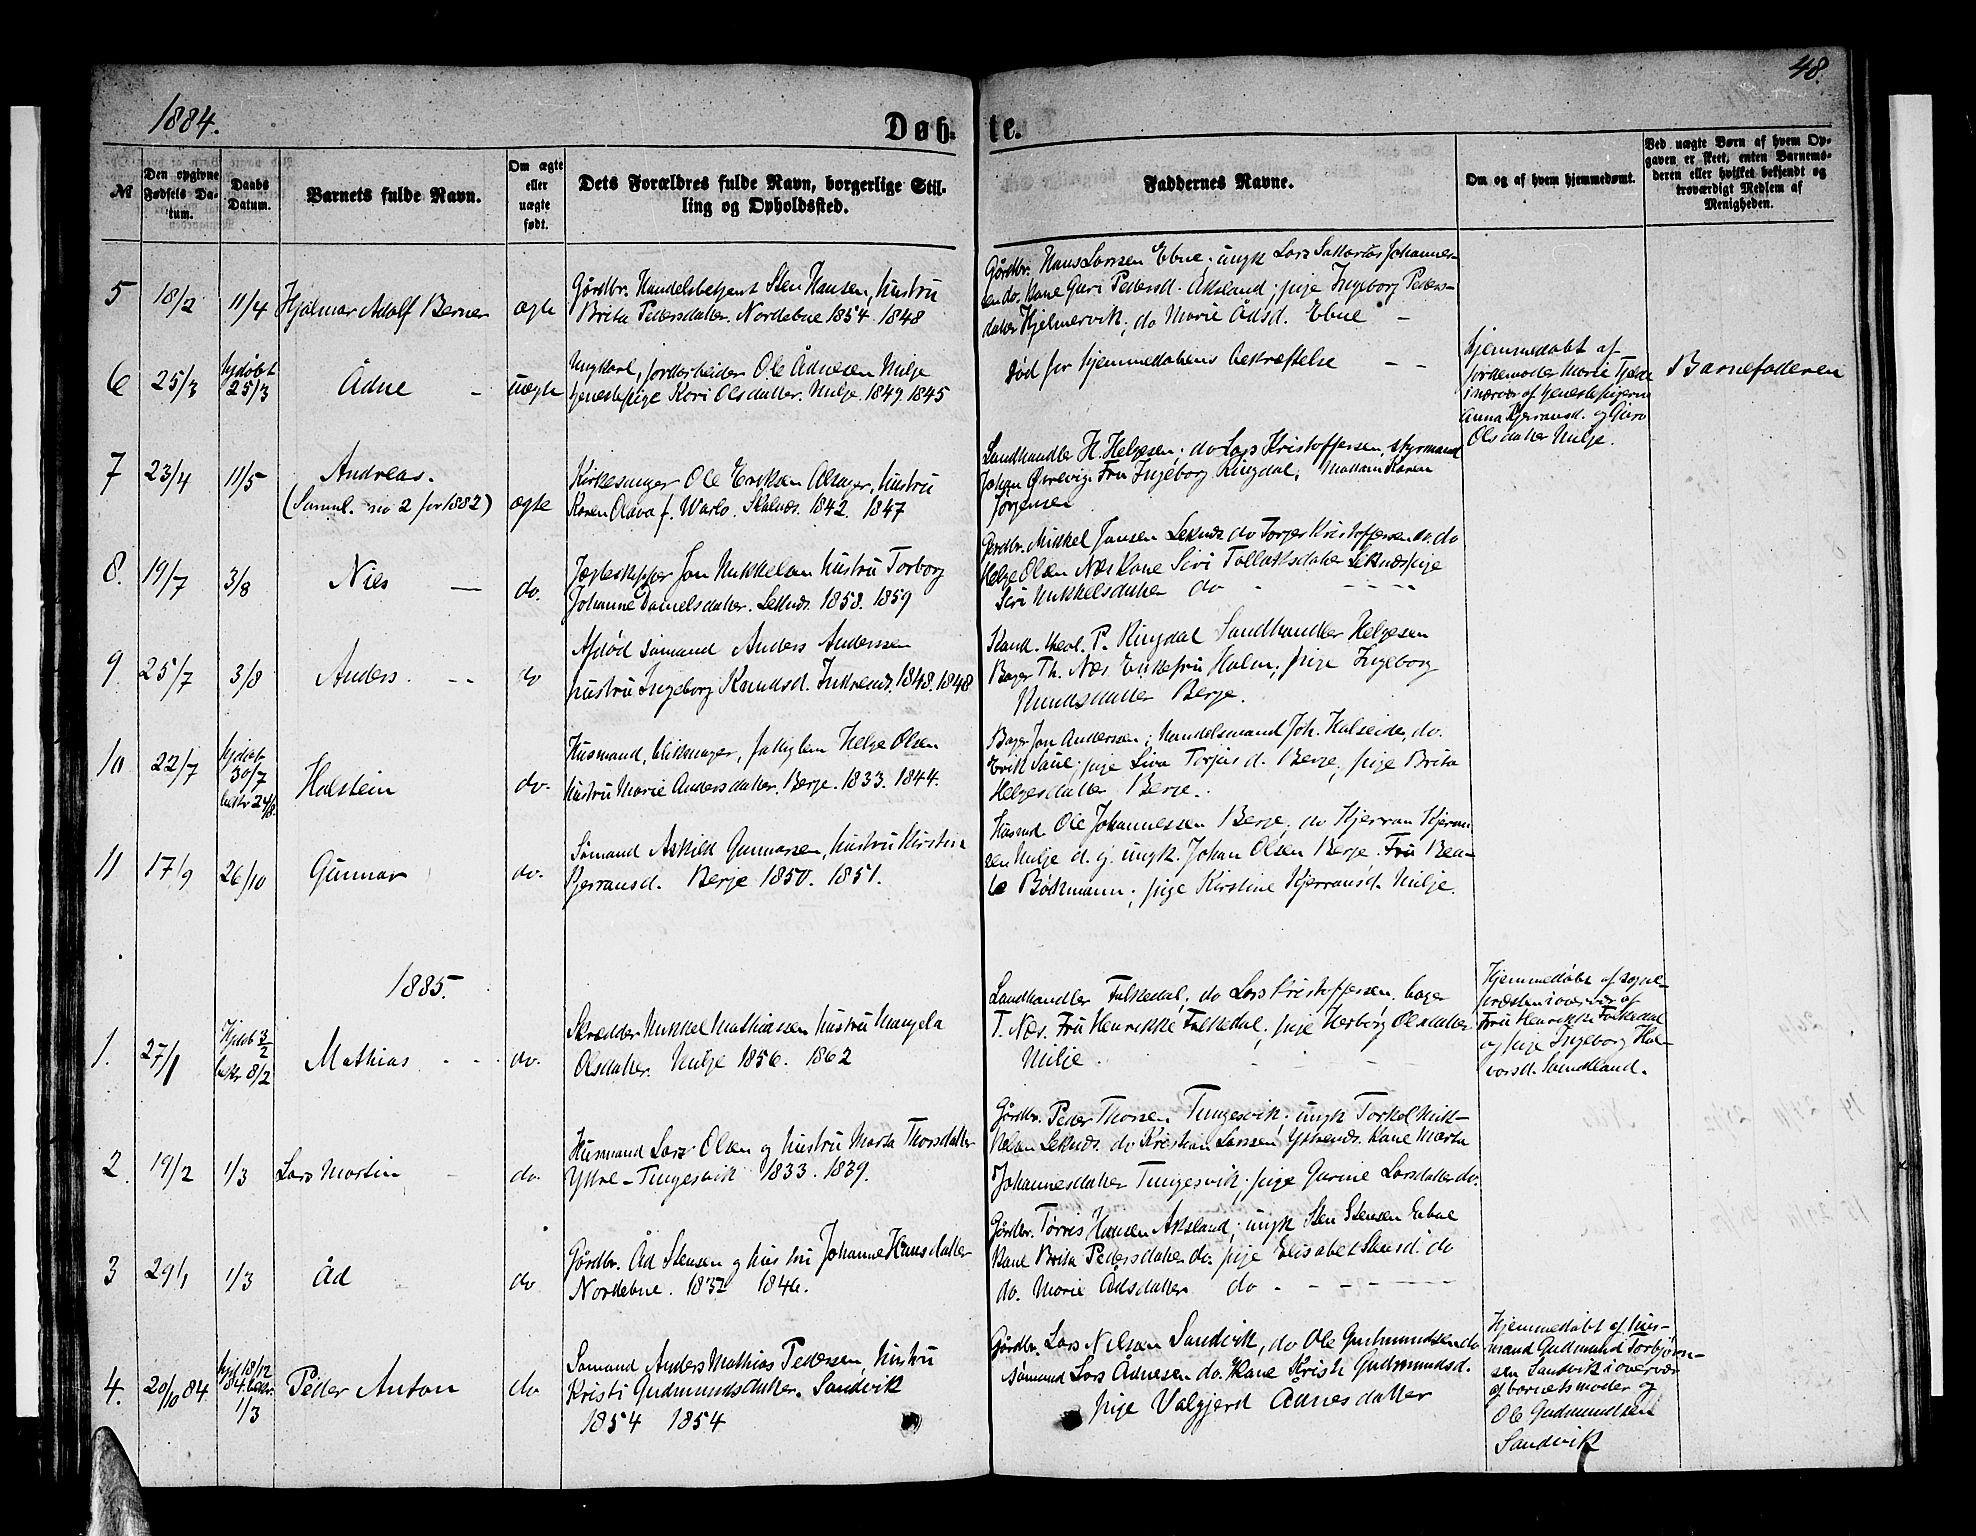 48.
1884.
Døb-
te.
№
Den opgivne Fødsels Da-
tum.
Daabs Datum.
Barnets fulde Navn.
Om ægte eller uægte født.
Dets Forældres fulde Navn, borgerlige Stil-
ling og Opholdssted.
Faddernes Navne.
Om og af hvem hjemmedøbt.
Ved uægte Børn af hvem Op-
gaven er skeet, enten Barnemo-
deren eller hvilket bekjendt og
troværdigt Medlem af
Menigheden.
5 18/2 11/4 Hjalmar Adolf Berner ægte
Gårdbr. Handelsbetjent Sten Hansen, hustru
Brita Pedersdatter. Nordebue 1854. 1848
Gårdbr. Hans Larssen Ebne; ungk Lars Johannes-
sen do. Kone Guri Pedersd. Aksland; pige Ingeborg Peders-
datter Hjelmervik; do Marie Ådsd. Ebne -
6 25/3 hjdøbt 25/3 Ådne - uægte
Ungkarl, jordarbeider Ole Ådnesen Milje
tjenestepige Kari Olsdatter. Milje. 1849 1845
død før hjemmedåbens bekræftelse - -
hjemmedøbt af
jordemoder Marie
i nærvær af tjenestepigerne
Anna Kjerransd. og Guro
Olsdatter Milje.
Barnefaderen
7 23/4 11/5 Andreas.
(Samml. no 2 for 1882) ægte
Kirkesanger Ole Eriksen Alsager, hustru
Karen Olava f. Warlo. Skånes. 1842. 1847
Landhandler H. Helgesen; do Lars Kristoffersen, styrmand
Johan Fru Ingeborg Ringdal, Madam Karen
Jørgensen
8. 19/7 3/8 Nils - do.
Jægteskipper Jon Mikkelsen hustru Torborg
Johanne Danielsdatter. Leknes. 1858. 1859
Gårdbr. Mikkel Jansen Leknes do Torger Kristoffersen do. do
Helge Olsen Næs Kone Siri Tollaksdatter Leknes pige
Siri Mikkelsdatter do - - - -
9 25/7 3/8 Anders. - - do
Afdød sømand Anders Anderssen
hustru Ingeborg Knudsd. 1848. 1848
Kand. theol. P. Ringdal Landhandler Helgesen
Bager Th. Næs. Enkefru Holm; pige Ingeborg
Knudsdatter Berge.
10 22/7 hjdøbt 30/7 bekr 24/8. Halstein do.
Husmand, fattiglem Helge Olsen
hustru Marie Andersdatter. Berge. 1833. 1844.
Bager Jon Andersen; handelsmand Joh. Halseide, do.
Erik pige Siva Torjusd. Berge; pige Brita
Helgesdatter Berge.
11 17/9 26/10 Gunnar do.
Sømand Askild Gunnarsen, hustru Kirstin
Kjerransd. Berge 1850. 1851.
Husmd. Ole Johannessen Berge. do Kjerran Kjerran-
sen Milje d. g. ungk. Johan Olsen Berge. Fru Bea-
te Bødtmann; pige Kirstine Kjerransd. Milje.
1885.
1. 27/1 Hjdøbt 3/2 bekr 8/2 Mathias - - do.
Skredder Mikkel Mathiassen hustru Mangela
Olsdatter. Milje 1856. 1862
Landhandler Falkedal; do Lars Kristoffersen. bager
T. Næs. Fru Henrikke Falkedal; pige Herborg Olsdatter
Milje - - -
Hjemmedøbt af sogne-
præsten i overvær af
Fru Henrikke Falkedal
og pige Ingeborg Hal-
vorsd. Svendland.
2. 19/2 1/3 Lars Martin - do.
Husmand Lars Olsen og hustru Marta Thorsdatter
Ytre-Tungesvik 1833. 1839.
Gårdbr. Peder Thorsen Tungesvik. ungk Torkel Mik-
kelsen Leknes. do Kristian Larssen Kone Marta
Johannesdatter Tungesvik; pige Gurine Larsdatter do.
3 29/1 1/3 Åd do
Gårdbr. Åd Stensen og hustru Johanne Hansdatter
Nordebue. 1832 1846.
Gårdbr. Tørris Hansen Aksland; ungk Sten Stensen Ebne
Kone Brita Pedersdatter do. pige Elisabet Stensd. do
do. Marie Ådsdatter do - - - - -
4. 20/10 84 hjd 18/12 84 bekr. 1/3 Peder Anton do
Sømand Anders Mathias Pedersen, hustru
Kristi Gudmundsdatter. Sandvik
1854 1854
Gårdbr. Lars Nilsen Sandvik, do Ole Gudmundsen do
sømand Lars Ådnesen do. Kone Kristi Gudmundsd.
pige Valgjerd Ådnesdatter
Hjemmedøbt af hus-
mand Gudmund Torbjørn-
sen Sandvik i overvær
af barnets moder og
Ole Gudmundsen
Sandvik